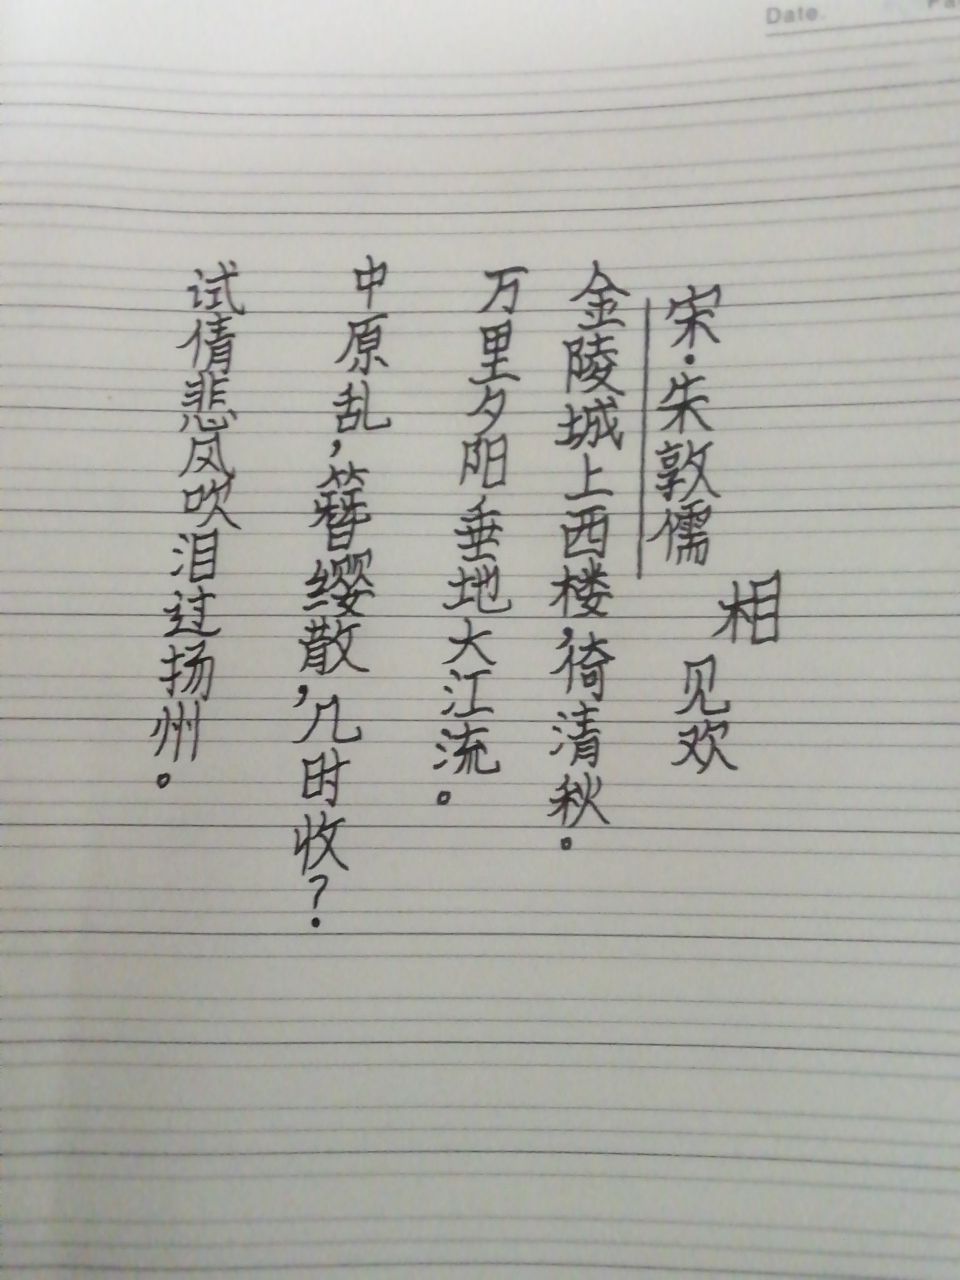 Date.
相见欢
宋·朱敦儒
金陵城上西楼,倚清秋。
万里夕阳垂地大江流。
中原乱,簪缨散,几时收?
试倩悲风吹泪过扬州。